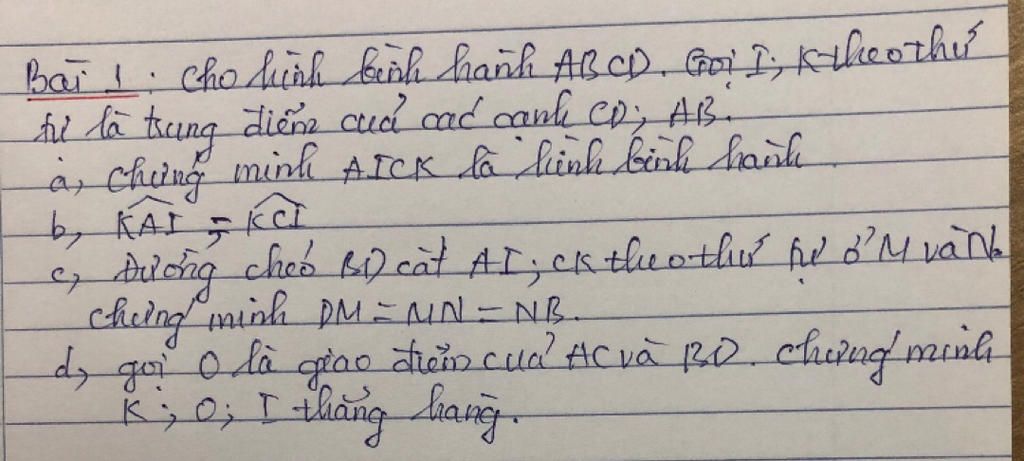 Bài 1: Cho hình bình hành ABCD. Gọi I; K theo thứ
tự là trung điểm của các cạnh CD; AB.
a, Chứng minh AICK là hình bình hành
b, KAI = KCI
c, Đường chéo BD cắt AI; CK theo thứ tự ở M và N
chứng minh DM = MN = NB.
d, gọi O là giao điểm của AC và BD. Chứng minh
K; O; I thẳng hàng.